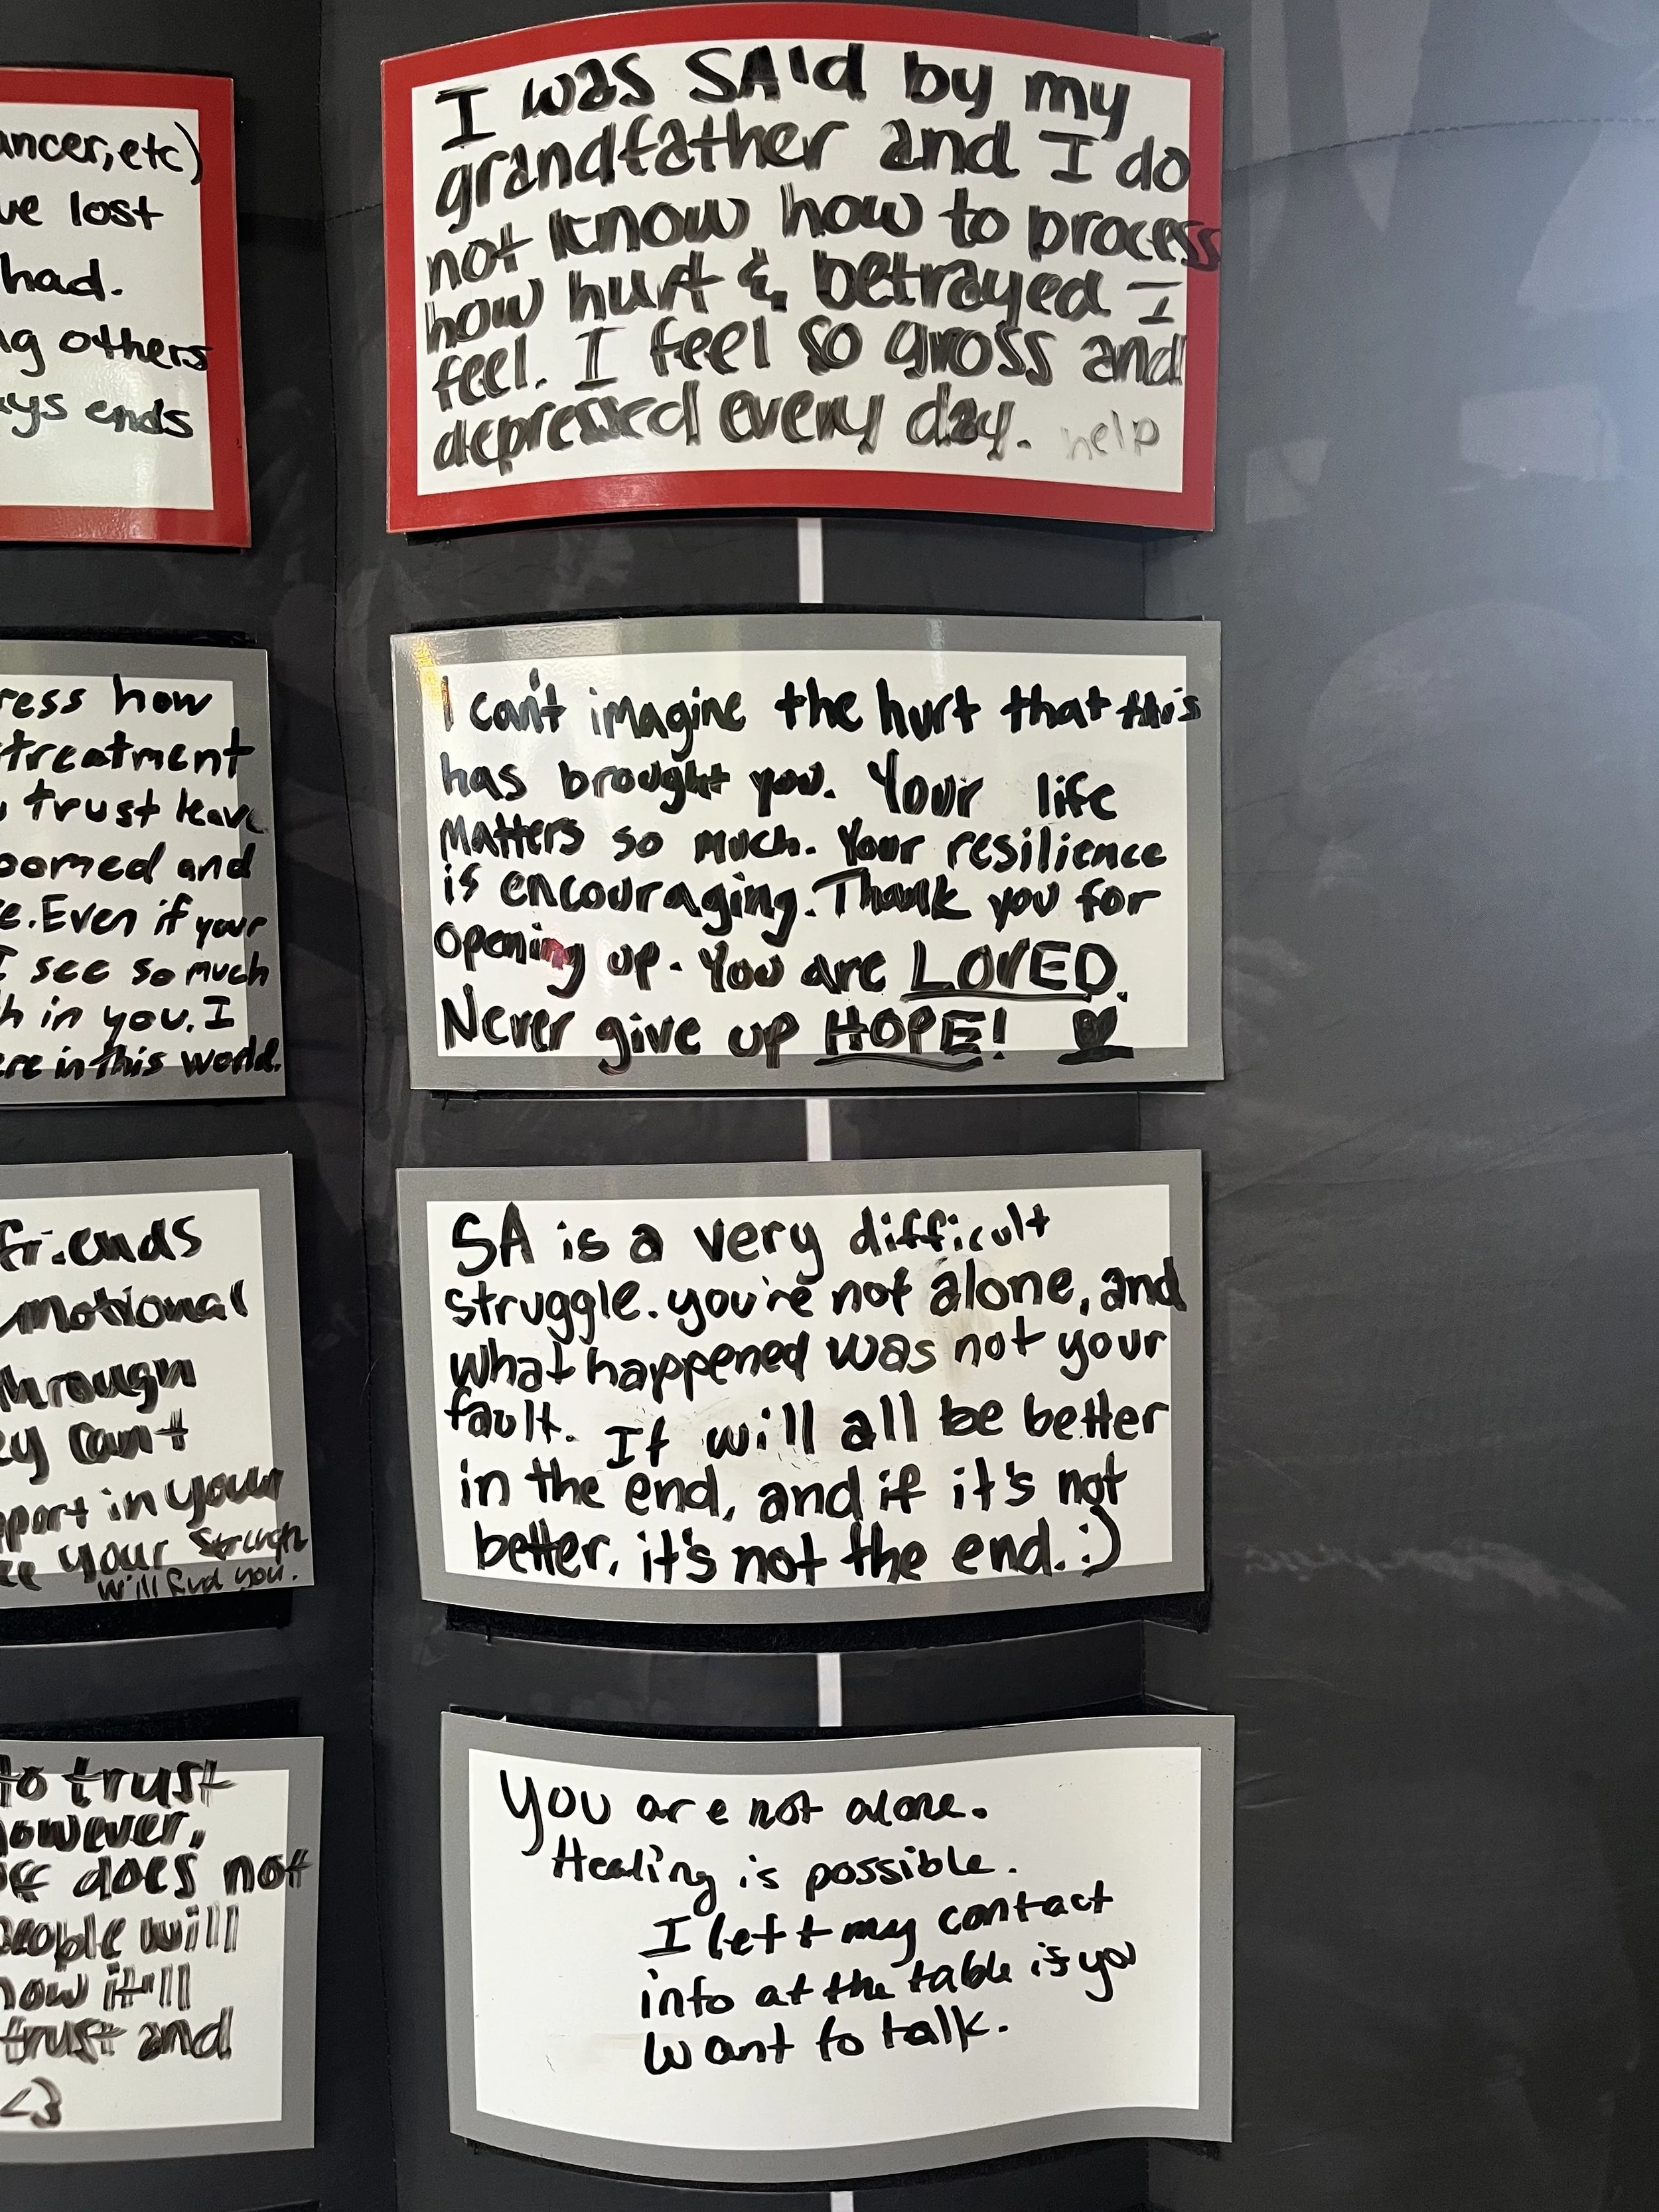 ancer, etc)
ve lost
had.
ng others
ays ends
ress how
treatment
trust leave
oomed and
e. Even if your
I see so much
h in you. I
ere in this world.
friends
emotional
through
ey can't
pport in your
ee your strength
will find you.
to trust
however,
does not
people will
now it'll
trust and
<3
I was SA'd by my
grandfather and I do
not know how to process
how hurt & betrayed I
feel. I feel so gross and
depressed every day. help
I can't imagine the hurt that this
has brought you. Your life
matters so much. Your resilience
is encouraging. Thank you for
opening up. You are LOVED.
Never give up HOPE!
SA is a very difficult
struggle. you're not alone, and
what happened was not your
fault. It will all be better
in the end, and if it's not
better, it's not the end. :)
You are not alone.
Healing is possible.
I left my contact
info at the table if you
want to talk.